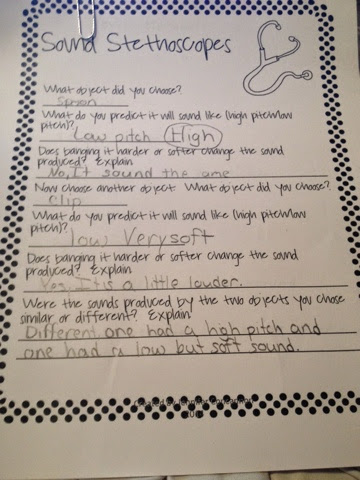 Sound Stethoscopes
What object did you choose?
Spoon
What do you predict it will sound like (high pitch/low
pitch)? Low pitch High
Does banging it harder or softer change the sound
produced? Explain
No, It sound the ame
Now choose another object What object did you choose?
Clip
What do you predict it will sound like (high pitch/low
pitch)?
low Very soft
Does banging it harder or softer change the sound
produced? Explain
Yes, It is a little louder.
Were the sounds produced by the two objects you chose
similar or different? Explain
Different one had a high pitch and
one had a low but soft sound.
Created by